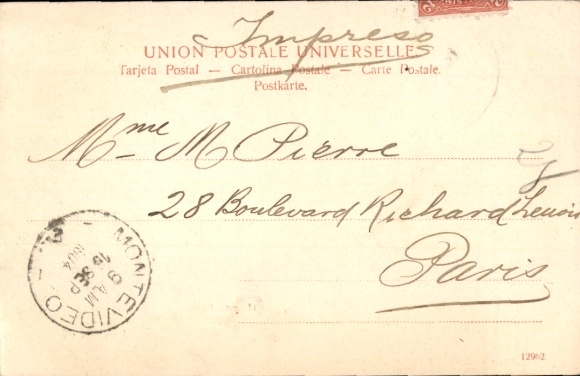 Impreso
UNION POSTALE UNIVERSELLE
Tarjeta Postal — Cartolina Postale — Carte Postale.
Postkarte.
Mme M Pierre
28 Boulevard Richard Lenoir
Paris
MONTEVIDEO
1904
12962